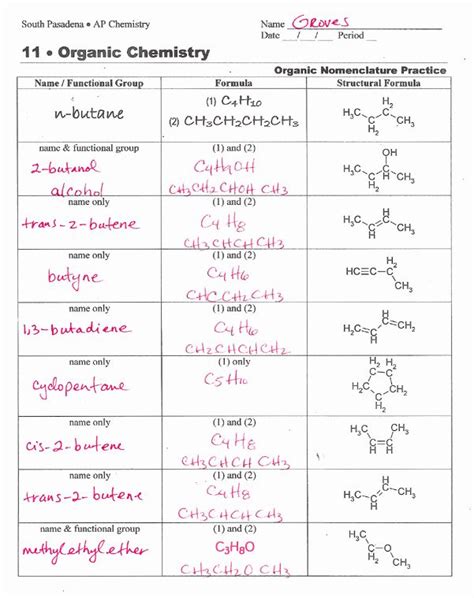 South Pasadena • AP Chemistry
Name Groves
Date __/__/__ Period
11 • Organic Chemistry
Organic Nomenclature Practice
Name / Functional Group Formula Structural Formula
n-butane
(1) C4H10
(2) CH3CH2CH2CH3
H2
H3C C
C CH3
H2
name & functional group
(1) and (2)
2-butanol
alcohol
C4H9OH
CH3CH2 CHOH CH3
OH
H3C C
C CH3
H2
H
name only
(1) and (2)
trans-2-butene
C4H8
CH3CHCHCH3
H
H3C C
C CH3
H
name only
(1) and (2)
butyne
C4H6
CHCCH2CH3
H2
HC≡C-C
CH3
name only
(1) and (2)
1,3-butadiene
C4H6
CH2CHCHCH2
H
H2C C
C CH2
H
name only
(1) only
cyclopentane
C5H10
H2 H2
C-C
H2C CH2
C
H2
name only
(1) and (2)
cis-2-butene
C4H8
CH3CHCH CH3
H3C CH3
C=C
H H
name only
(1) and (2)
trans-2-butene
C4H8
CH3CHCHCH3
H
H3C C
C CH3
H
name & functional group
(1) and (2)
methylethylether
C3H8O
CH3CH2O CH3
H3C
H2C-O
CH3